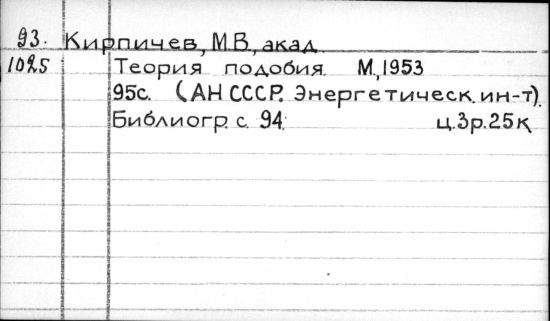 93. Кирпичев, М.В., акад.
1025 Теория подобия. М., 1953
95с. (АН СССР. Энергетическ. ин-т).
Библиогр. с. 94. ц. 3р.25к